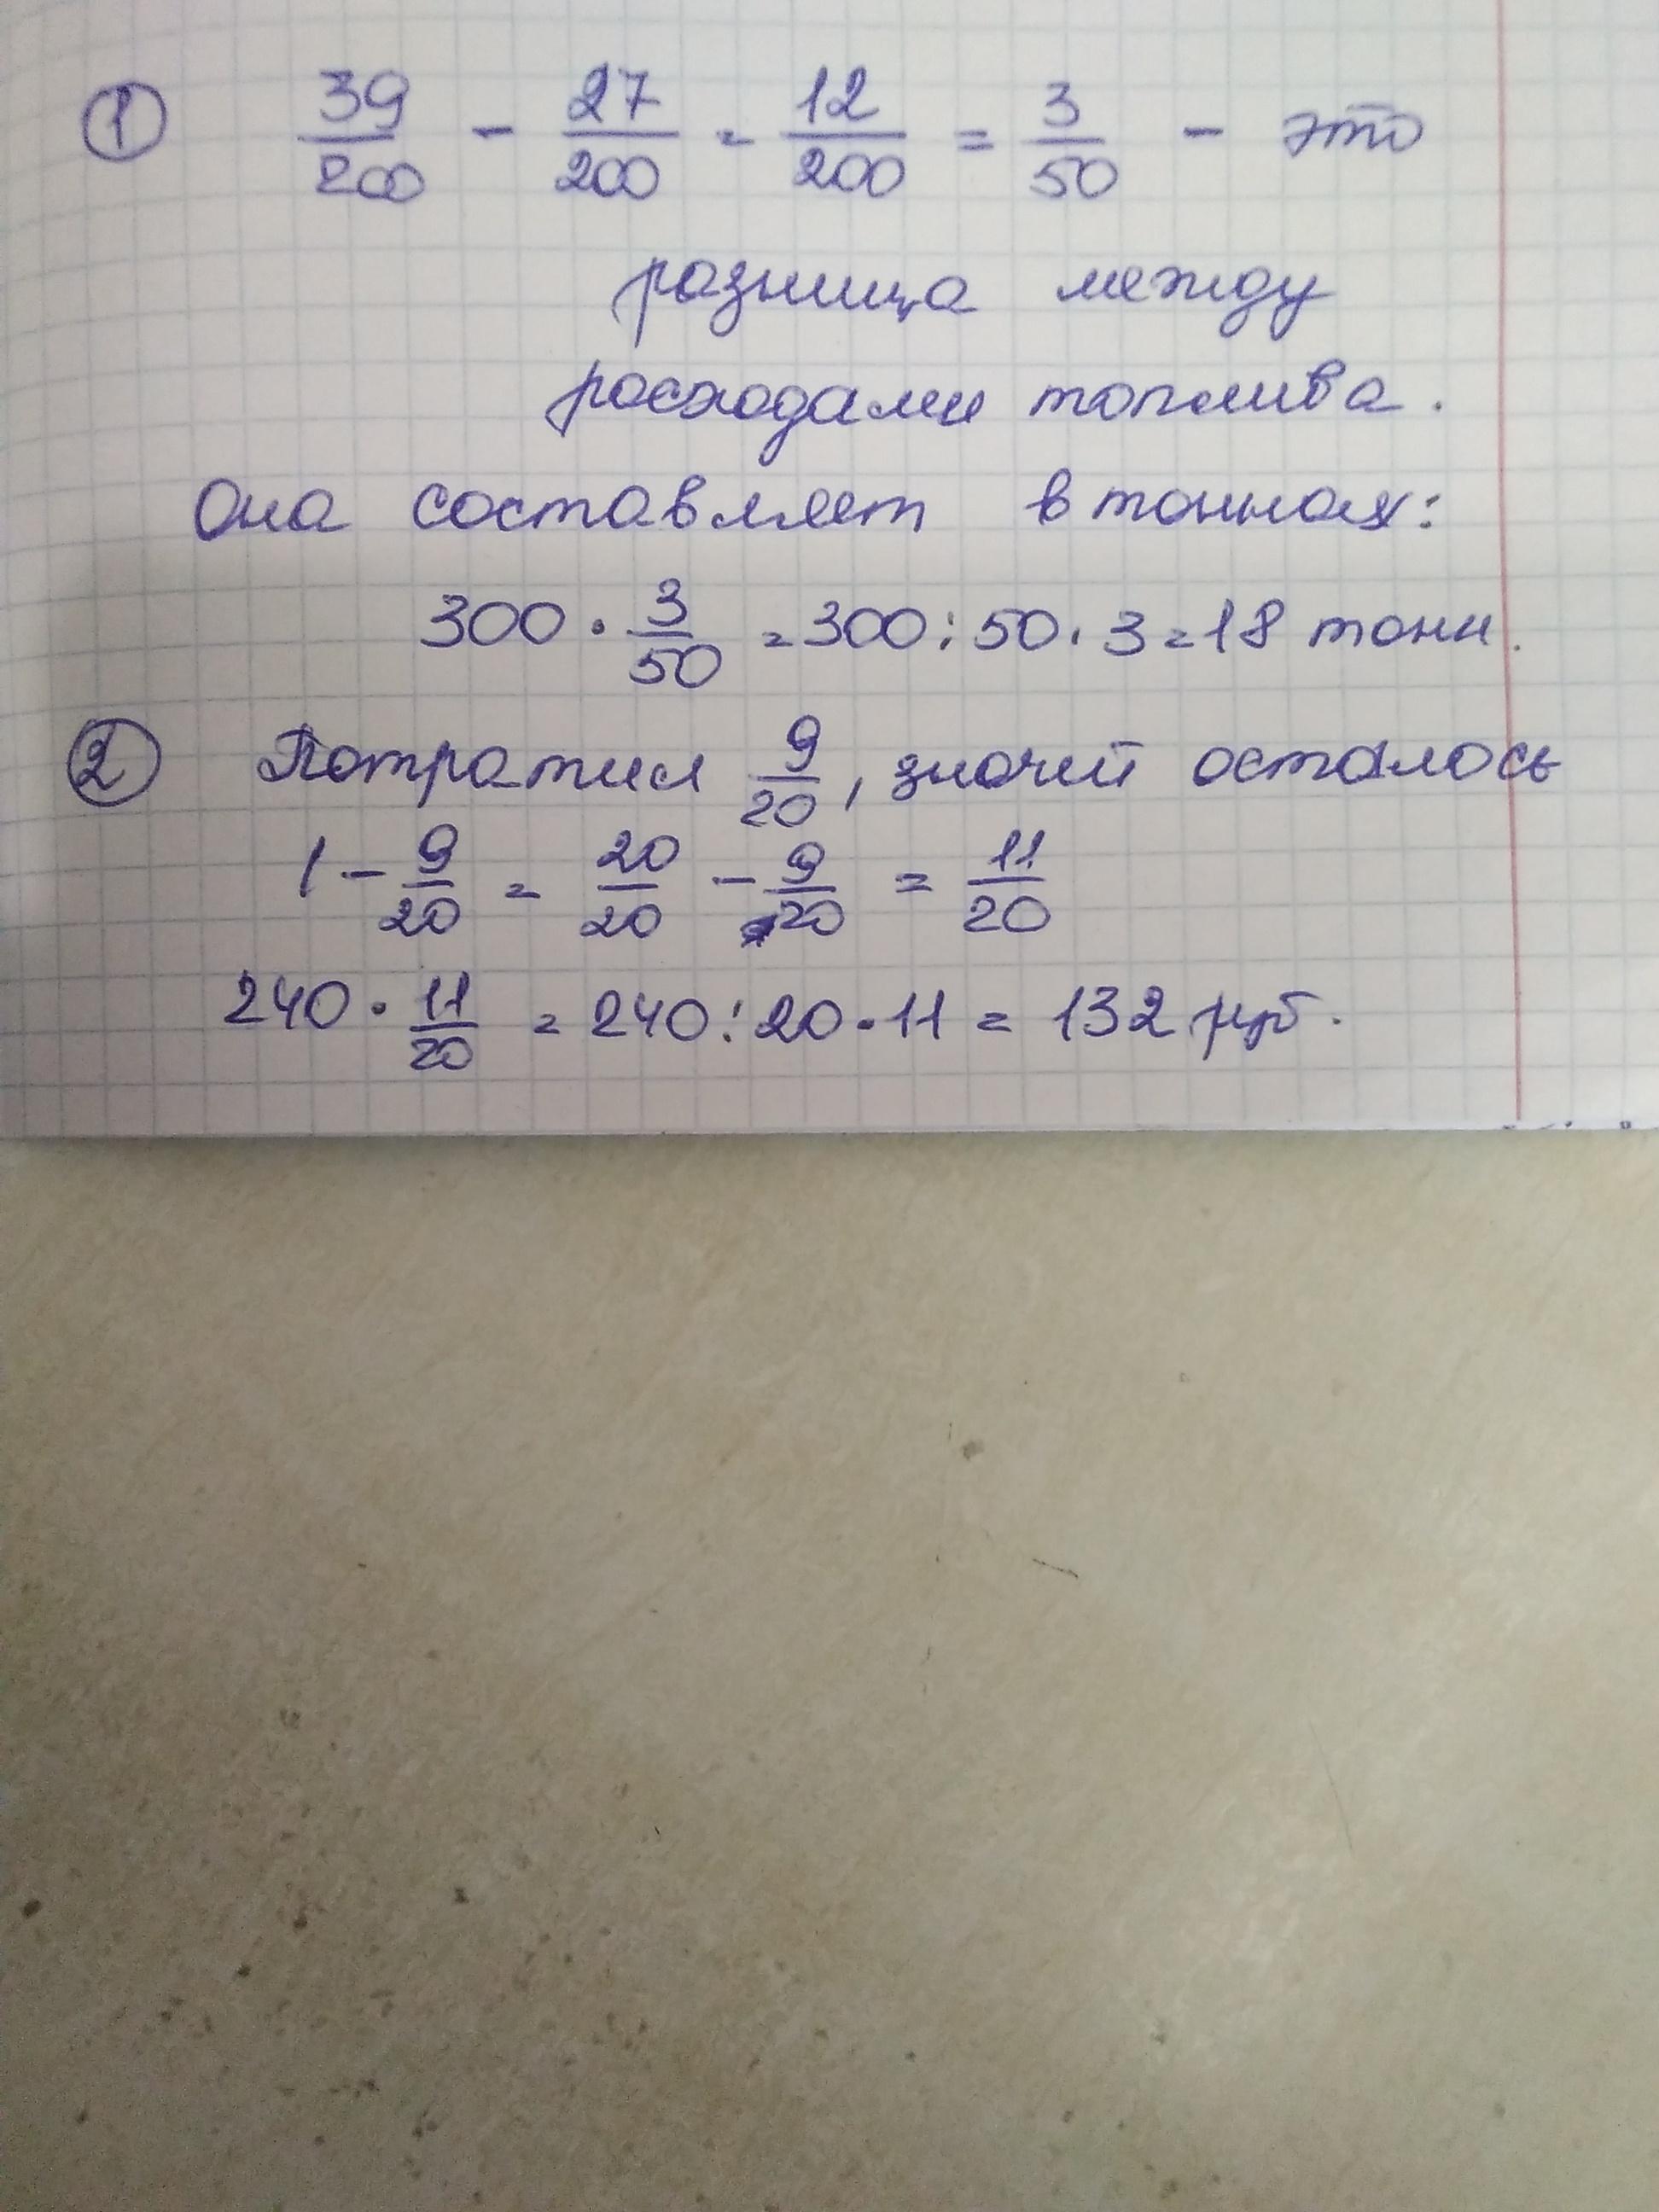 ① 39/200 - 27/200 = 12/200 = 3/50 - это
разница между
расходами топлива.
Она составляет в тоннах:
300 · 3/50 = 300 : 50 · 3 = 18 тонн.
② Потратил 9/20, значит осталось
1 - 9/20 = 20/20 - 9/20 = 11/20
240 · 11/20 = 240 : 20 · 11 = 132 руб.